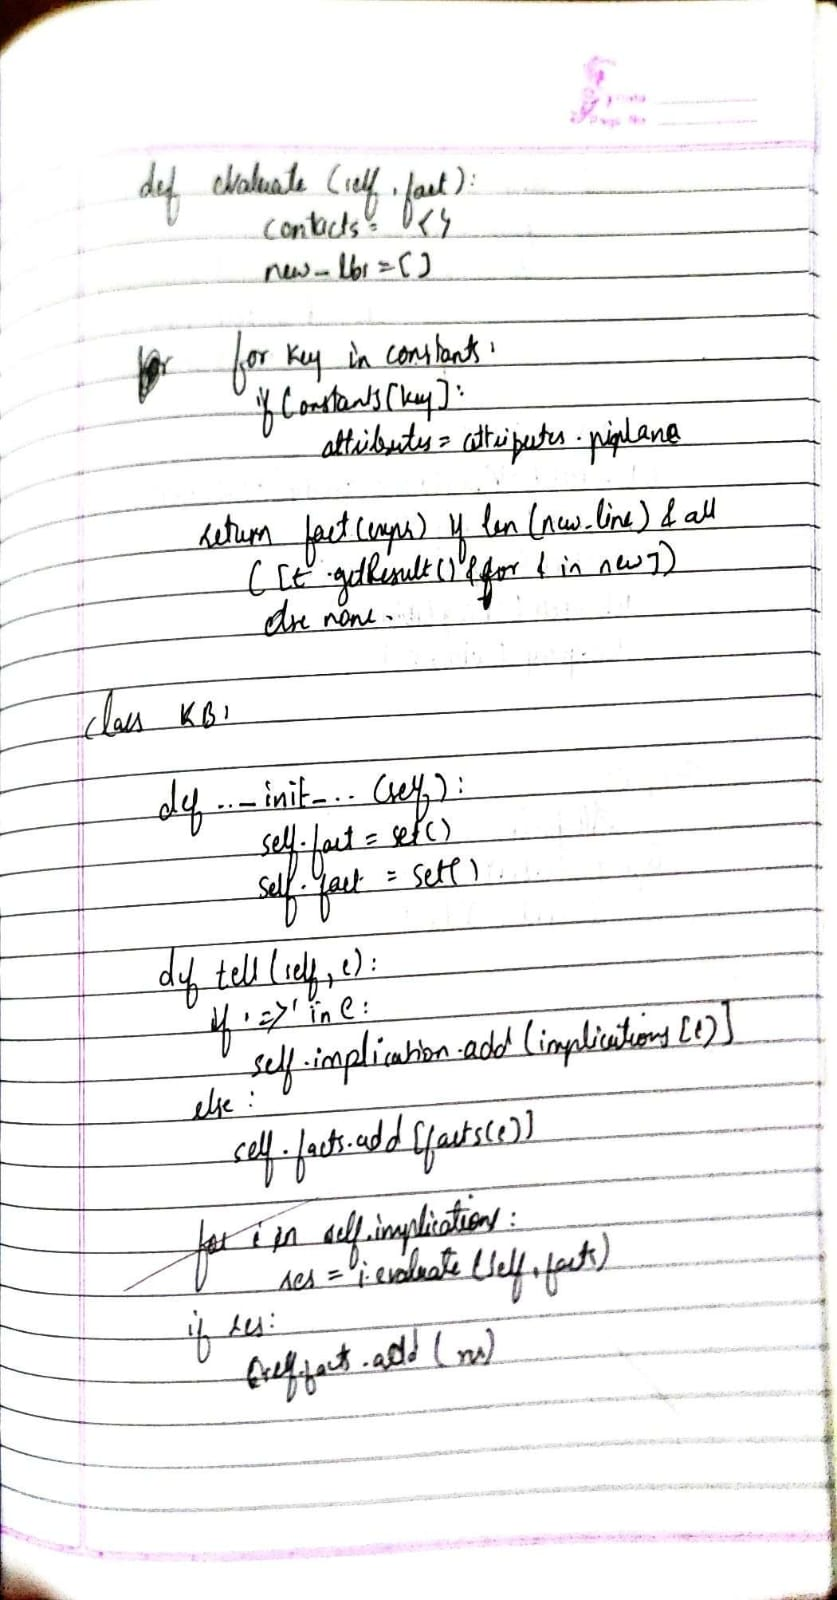 def evaluate (self, fact):
contacts = { }
new-lbr = [ ]
for key in constants:
if Constants[key]:
attributes = attributes.
return fact(exps) if len (new-line) & all
( [t .getResult() for f in new])
else none.
class KB:
def ..-init-... (self):
self.fact = set()
self.fact = set()
def tell (self, e):
if '=>' in e:
self.implication.add (implications [e)]
else :
self.facts.add [facts(e)]
for i in self.implications:
res = i.evaluate (self, facts)
if res:
self.fact.add (res)